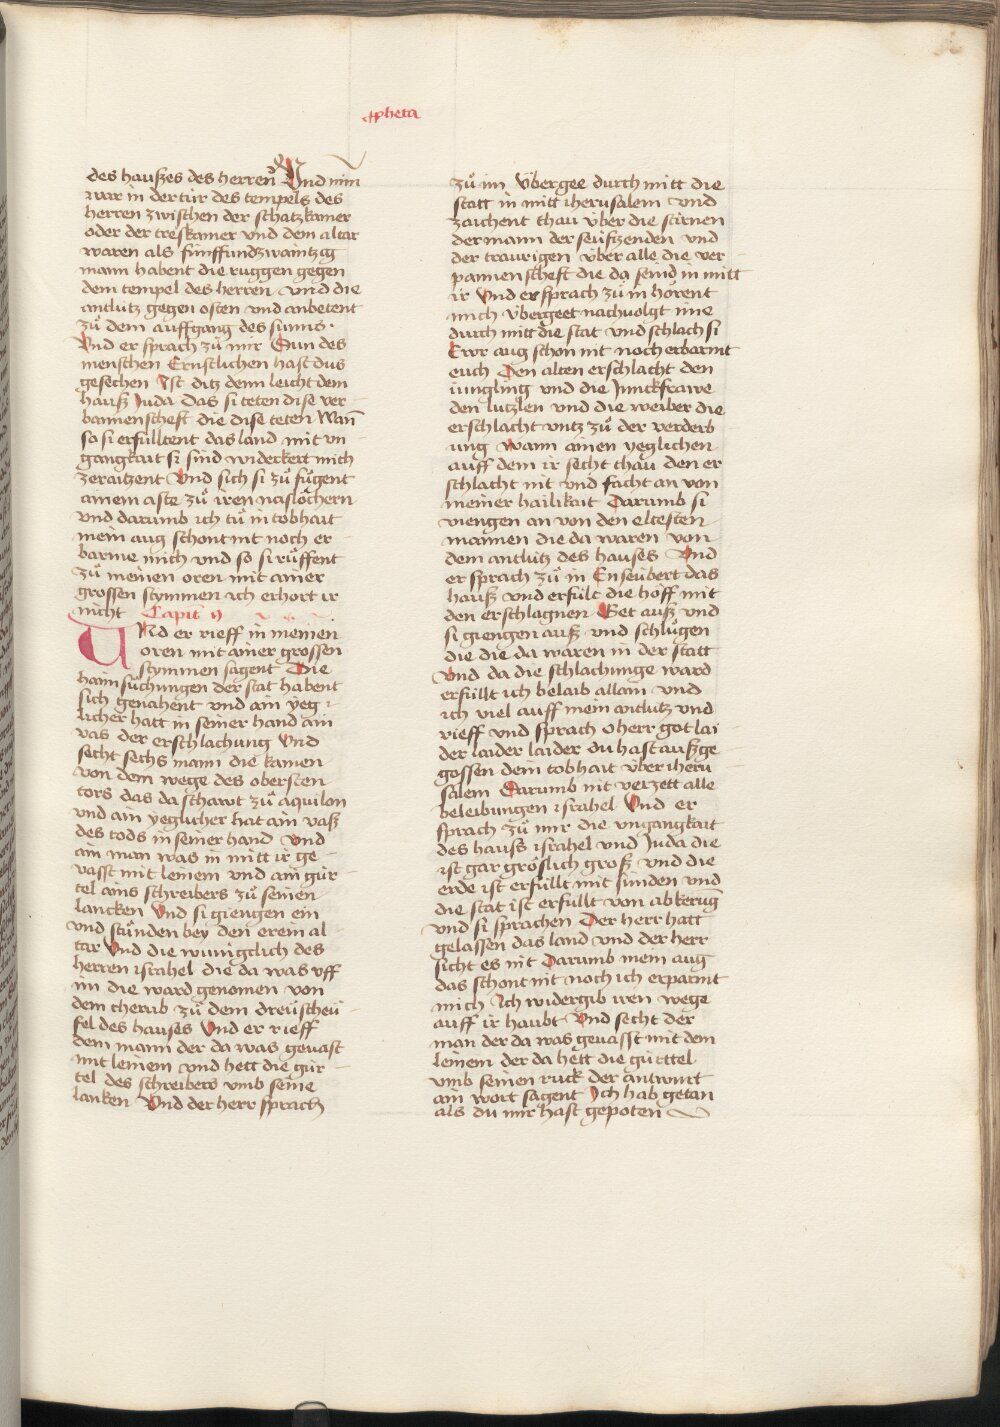 pheta
des haußes des herren Vnd nim
war in der tür des tempels des
herren zwischen der schatzkamer
oder der treskamer vnd dem altar
waren als fünffundzwaintzig
mann habent die ruggen gegen
dem tempel des herren vnd die
antlütz gegen osten vnd anbetent
zů dem auffgang des sunns
Vnd er sprach zů mir Sun des
menschen Ernstlichen hast dus
gesechen Ist ditz denn leicht dem
hauß Juda das si teten dise ver
bannenscheft die dise teten Wañ
so si erfülltent das land mit vn
gangkait si sind widerkert mich
zeraitzent Vnd sich si zů fůgent
ainem aste zů iren naslöchern
vnd darumb ich tů in tobhait
mein aug schont nit noch er
barme mich vnd so si růffent
zů meinen oren mit ainer
grossen stymmen ich erhort ir
nicht Capit 9
VNd er rieff in meinen
oren mit ainer grossen
stymmen sagent Die
haimsůchungen der stat habent
sich genahent vnd ain yeg
licher hatt in seiner hand ain
vas der erschlachung Vnd
secht sechs mann die kamen
von dem wege des obersten
tors das da schawt zů aquilon
vnd ain yeglicher hat ain vaß
des tods in seiner hand Vnd
ain man was in mitt ir ge
vasst mit leinem vnd ain gür
tel ains schreibers zů seinen
lancken Vnd si giengen ein
vnd stůnden bey den erem al
tar Vnd die wunigclich des
herren israhel die da was vff
im die ward genomen von
dem cherub zů dem dreüscheü
fel des hauses Vnd er rieff
dem mann der da was geuast
mit leinem vnd hett die gür
tel des schreibers vmb seine
lanken Vnd der herr sprach
zů im Vbergee durch mitt die
statt in mitt iherusalem vnd
zaichent thau über die stirnen
der mann der seüfftzenden vnd
der traurigen über alle die ver
pannenscheft die da seind in mitt
ir Vnd er sprach zů in horent
mich Vbergeet nachuolgt ime
durch mitt die stat vnd schlach si
Ewr aug schon nit noch erbarmt
euch Den alten erschlacht den
iungling vnd die Junckfrawe
den lutzlen vnd die weiber die
erschlacht vntz zů der verderb
ung Wann ainen yeglichen
auff dem ir secht thau den er
schlacht nit vnd facht an von
meiner hailikait Darumb si
viengen an von den eltesten
mannen die da waren von
dem antlütz des hauses Vnd
er sprach zů in Enseübert das
hauß vnd erfült die höff mit
den erschlagnen Get auß vnd
si giengen auß vnd schlůgen
die die da waren in der statt
Vnd da die schlachunge ward
erfüllt ich belaib allain vnd
ich viel auff mein antlütz vnd
rieff vnd sprach o herr got lai
der laider laider du hast außge
gossen dein tobhait über iheru
salem Darumb nit verzett alle
beleibungen israhel Vnd er
sprach zů mir die vngangkait
des hauss israhel vnd Juda die
ist gar gröslich groß vnd die
erde ist erfüllt mit sünden vnd
die stat ist erfüllt von abkerug̃
vnd si sprachen Der herr hatt
gelassen das land vnd der herr
sicht es nit Darumb mein aug
das schont nit noch ich erparmt
mich Ich widergib iren wege
auff ir haubt Vnd secht der
man der da was geuasst mit dem
leinem der da hett die gürttel
vmb seinen ruck der antwurt
ain wort sagent Ich hab getan
als du mir hast gepoten